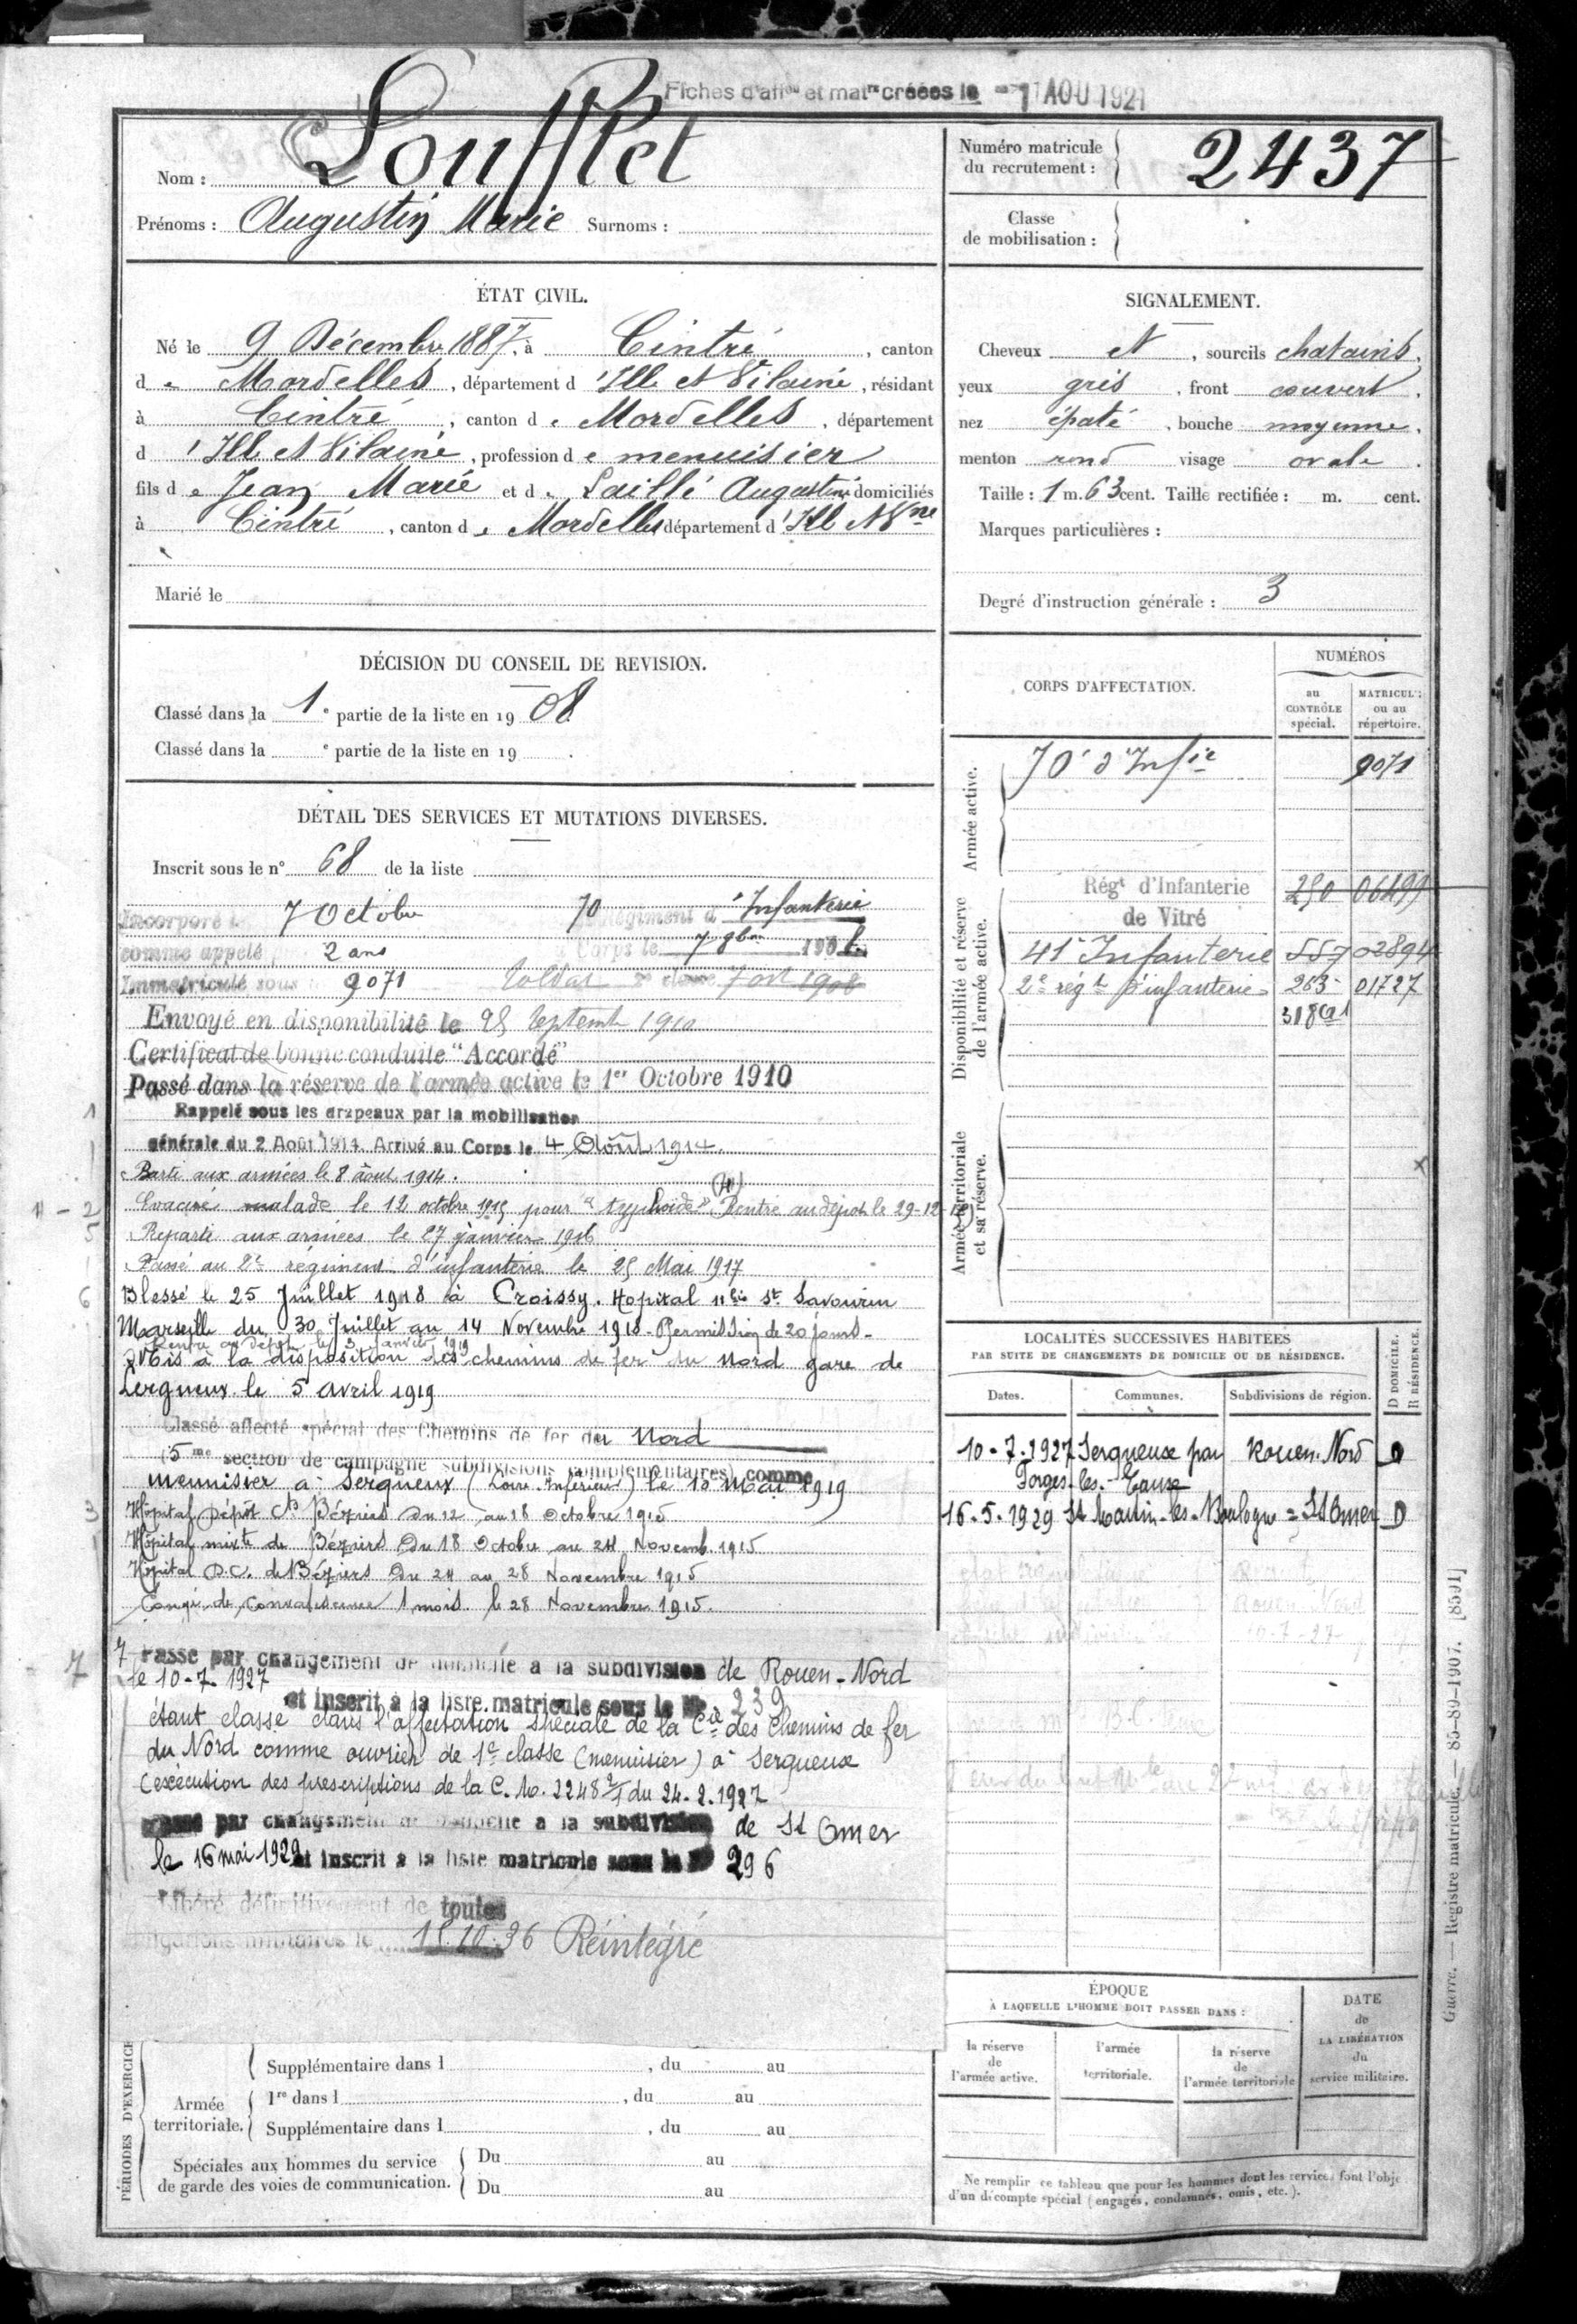 Fiches d'aff^on et mat^re créées le 1 AOU 1921
Nom : Soufflet
Prénoms : Augustin Marie Surnoms :
Numéro matricule
du recrutement :
2437
Classe
de mobilisation :
ÉTAT CIVIL.
Né le 9 Décembre 1887, à Cintré, canton
de Mordelles, département d'Ille et Vilaine, résidant
à Cintré, canton de Mordelles, département
d'Ille et Vilaine, profession de menuisier
fils de Jean Marie et de Saillé Augustine domiciliés
à Cintré, canton de Mordelles département d'Ille et V^ne
Marié le
SIGNALEMENT.
Cheveux et, sourcils chatains.
yeux gris, front couvert.
nez épaté, bouche moyenne.
menton rond visage ovale.
Taille : 1 m. 63 cent. Taille rectifiée : m. cent.
Marques particulières :
Degré d'instruction générale : 3
DÉCISION DU CONSEIL DE REVISION.
Classé dans la 1e partie de la liste en 1908
Classé dans la e partie de la liste en 19 .
DÉTAIL DES SERVICES ET MUTATIONS DIVERSES.
Inscrit sous le n° 68 de la liste
Incorporé le 7 Octobre 70 Régiment d'Infanterie
comme appelé 2 ans Corps le 7 8bre 1908.
Immatriculé sous 9071 Soldat 2e classe 7 oct 1908
Envoyé en disponibilité le 25 Septemb 1910
Certificat de bonne conduite "Accordé"
Passé dans la réserve de l'armée active le 1er Octobre 1910
1 Rappelé sous les drapeaux par la mobilisation
générale du 2 Août 1914. Arrivé au Corps le 4 Août 1914.
Parti aux armées le 8 août 1914.
Evacué malade le 12 octobre 1915 pour "typhoïde" (4) Rentré au dépôt le 29-12-15
Reparti aux armées le 27 janvier 1916
Passé au 2e régiment d'infanterie le 25 Mai 1917
6 Blessé le 25 Juillet 1918 à Croissy. Hopital 11 bis St. Savournin
Marseille du 30 Juillet au 14 Novembre 1918 - Permission de 20 jours -
Rentré au dépôt le 3 janvier 1919
Mis à la disposition des chemins de fer du Nord gare de
Serqueux le 5 avril 1919
Classé affecté spécial des Chemins de fer du Nord
(5me section de campagne subdivisions complémentaires) comme
menuisier à Serqueux (Loire Inférieure) le 10 Mai 1919
3 Hôpital Dépôt Béziers du 12 au 18 Octobre 1915
Hôpital mixte de Béziers du 18 Octobre au 24 Novemb. 1915
Hôpital D.C. de Béziers du 24 au 28 Novembre 1915
Congé de Convalescence 1 mois le 28 Novembre 1915.
7 Passé par changement de domicile à la subdivision de Rouen-Nord
le 10-7-1927
et inscrit à la liste matricule sous le N° 239
étant classé dans l'affectation spéciale de la Cie des Chemins de fer
du Nord comme ouvrier de 1e classe (menuisier) à Serqueux
(exécution des prescriptions de la C.M. 2248 2/1 du 24-2-1927
Passé par changement de domicile à la subdivision de St Omer
le 16 mai 1929 et inscrit à la liste matricule sous le N° 296
Libéré définitivement de toutes
obligations militaires le 15.10.36 Réintégré
CORPS D'AFFECTATION.
NUMÉROS
au
CONTRÔLE
spécial.
MATRICULE
ou au
répertoire.
Armée active.
70e d'Inf^ie 9071
Disponibilité et réserve
de l'armée active.
Rég^t d'Infanterie 250 06499
de Vitré
41e Infanterie 557 02894
2e rég^t d'infanterie 263 01727
318
Armée territoriale
et sa réserve.
LOCALITÉS SUCCESSIVES HABITÉES
PAR SUITE DE CHANGEMENTS DE DOMICILE OU DE RÉSIDENCE.
D DOMICILE.
R RÉSIDENCE.
Dates. Communes. Subdivisions de région.
10-7-1927 Serqueux par Rouen-Nord D
Forges-les-Eaux
16-5-1929 St Martin-les-Boulogne = St Omer D
ÉPOQUE
À LAQUELLE L'HOMME DOIT PASSER DANS :
la réserve
de
l'armée active.
l'armée
territoriale.
la réserve
de
l'armée territoriale
DATE
de
LA LIBÉRATION
du
service militaire.
Ne remplir ce tableau que pour les hommes dont les services font l'obje
d'un décompte spécial (engagés, condamnés, omis, etc.).
PÉRIODES D'EXERCICE
Supplémentaire dans l , du au
Armée
territoriale.
1re dans l , du au
Supplémentaire dans l , du au
Spéciales aux hommes du service
de garde des voies de communication.
Du au
Du au
Guerre. — Registre matricule. — 85-89-1907. [8591]